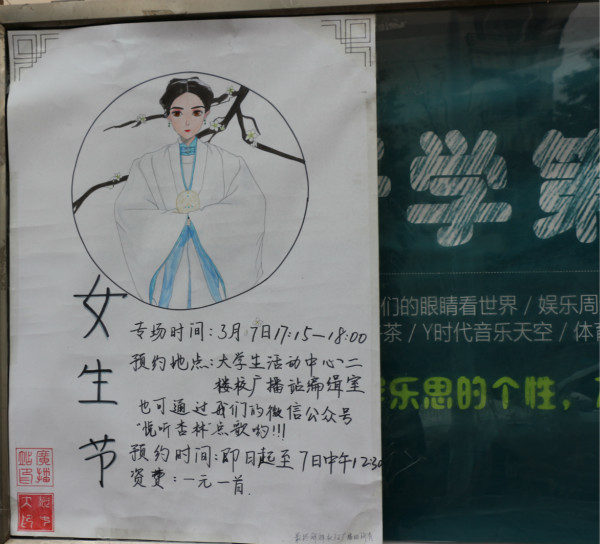 女生节
专场时间:3月7日17:15—18:00
预约地点:大学生活动中心二
楼校广播站编缉室
也可通过我们的微信公众号
"悦听杏林"点歌哟!!!
预约时间:即日起至7日中午12:30
资费:一元一首.
廣播
站
学
们的眼睛看世界 / 娱乐周
茶 / Y时代音乐天空 / 体育
乐思的个性,